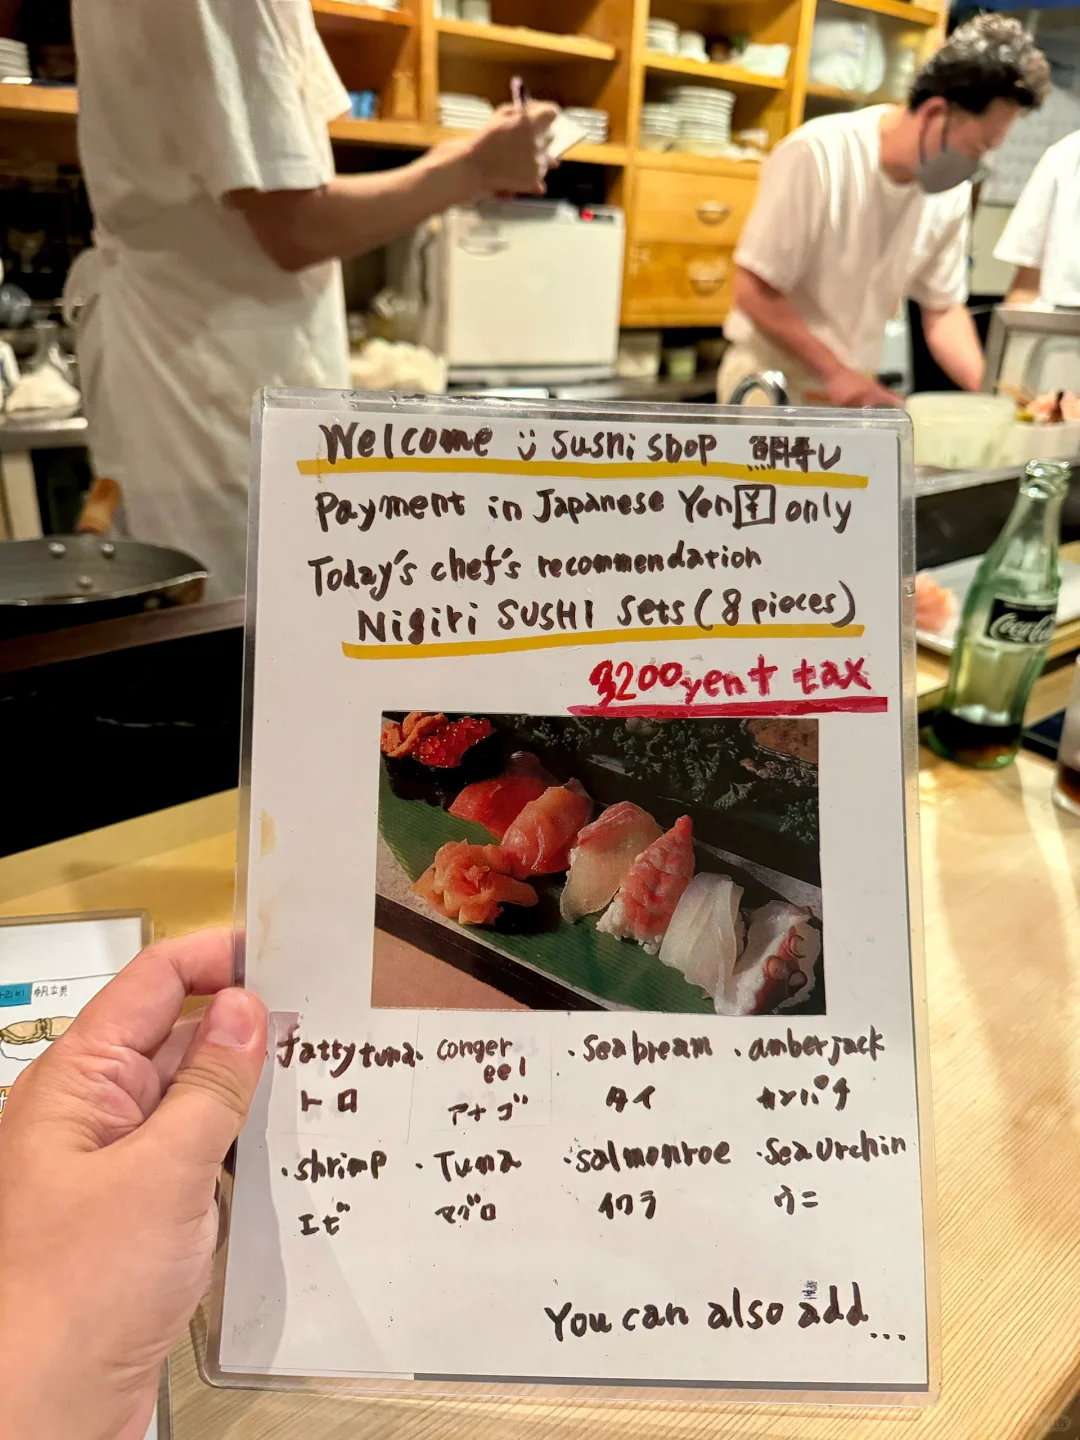 Welcome sushi shop
Payment in Japanese Yen ¥ only
Today's chef's recommendation
Nigiri SUSHI sets (8 pieces)
3200yen+ tax
fatty tuna · conger eel · Sea bream · amberjack
トロ アナゴ タイ カンパチ
· shrimp · Tuna · salmonroe · Sea Urchin
エビ マグロ イクラ ウニ
You can also add...
Coca-Cola